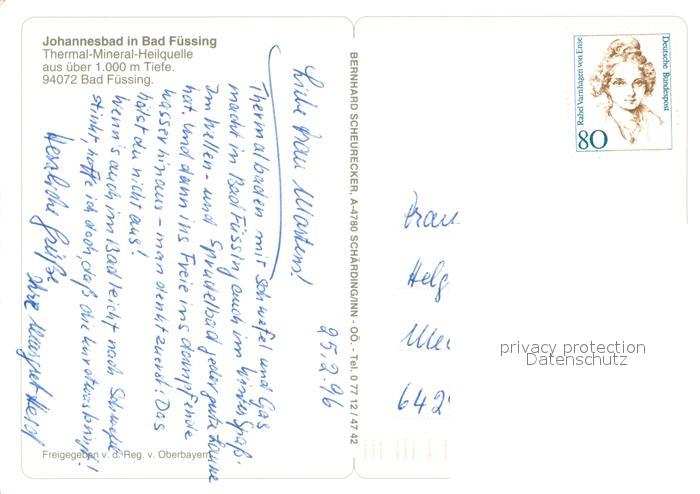 Johannesbad in Bad Füssing
Thermal-Mineral-Heilquelle
aus über 1.000 m Tiefe.
94072 Bad Füssing.
25.2.96
Liebe Frau Martin!
Thermalbaden mit Schwefel und Gas
macht in Bad Füssing auch im Winter Spaß.
Im Wellen- und Sprudelbad jeder gute Laune
hat. und dann ins Freie ins dampfende
Wasser hinaus - man denkt zuerst: Das
hälst du nicht aus!
Wenn's auch im Bad leicht nach Schwefel
stinkt, hoffe ich doch, daß die Kur etwas bringt!
Herzliche Grüße
Ihre Margret
Freigegeben v. d. Reg. v. Oberbayern
BERNHARD SCHEURECKER, A-4780 SCHÄRDING/INN - OÖ. - Tel. 0 77 12 / 47 42
Rahel Varnhagen von Ense
Deutsche Bundespost
80
Frau
Helg
642
privacy protection
Datenschutz